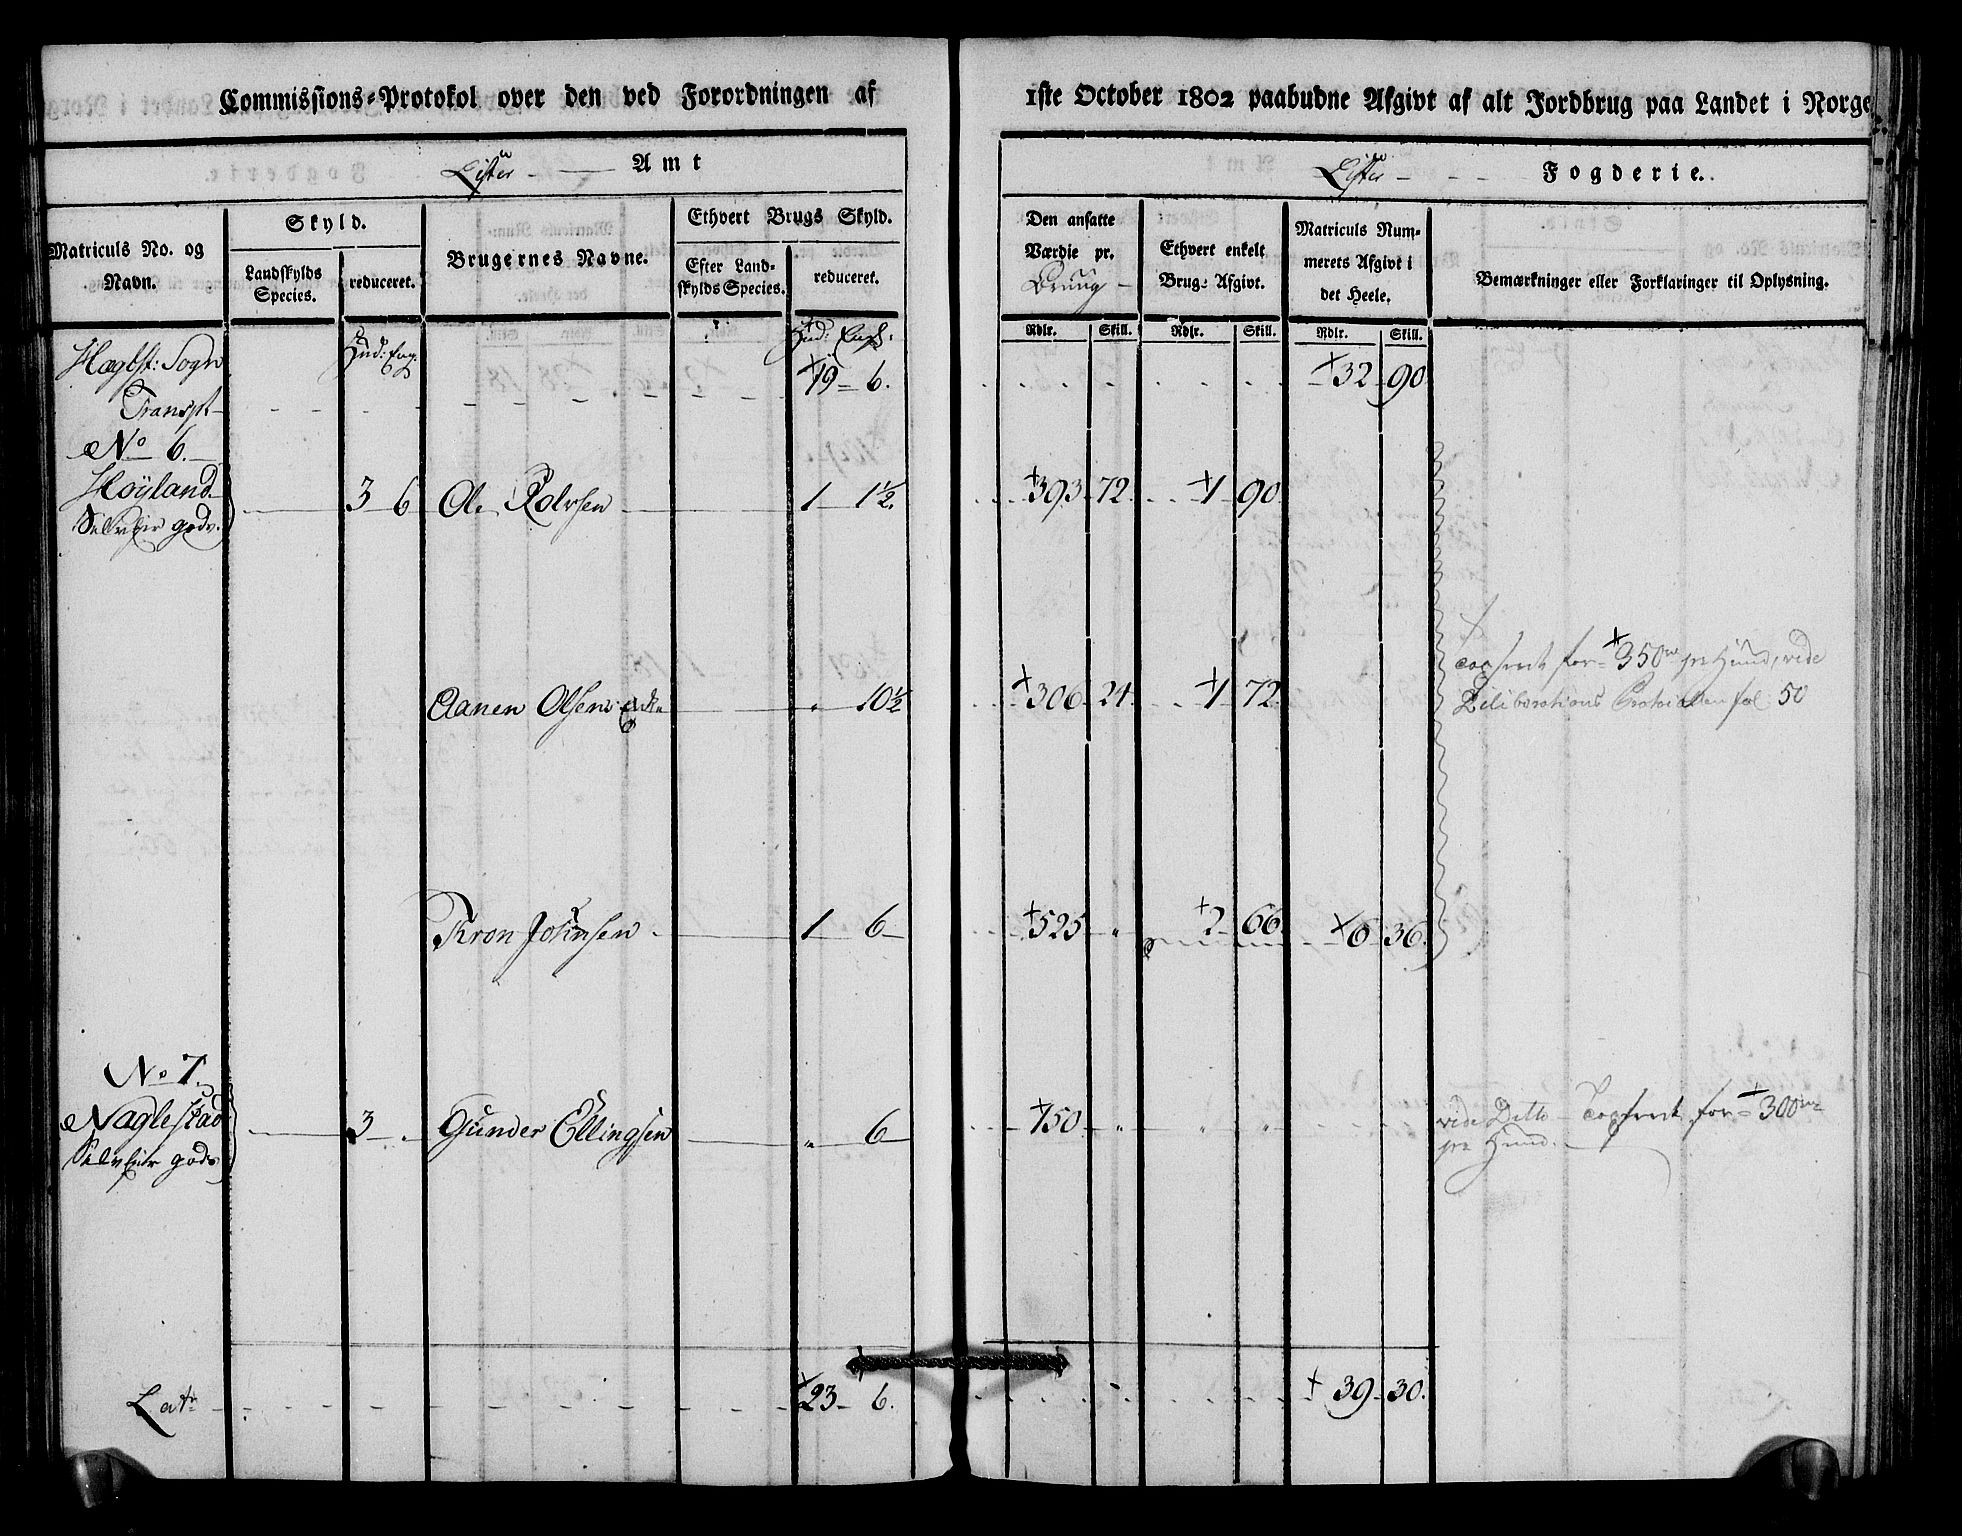 Commissions-Protokol over den ved Forordningen af 1ste October 1802 paabudne Afgivt af alt Jordbrug paa Landet i Norge
Lister Amt
Lister Fogderie.
Matriculs No. og Navn.
Skyld.
Landskylds Species.
reduceret.
Brugernes Navne.
Ethvert Brugs Skyld.
Efter Landskylds Species.
reduceret.
Den ansatte Værdie pr. Bruug
Ethvert enkelt Brugs Afgivt.
Matriculs Nummerets Afgivt i det Heele.
Bemærkninger eller Forklaringer til Oplysning.
Rdlr. Skill. Rdlr. Skill. Rdlr. Skill.
Hægbst: Sogn Hud: Eng. Hud: Eng.
Transpt 19 6. 32 90
No 6.
Høyland 3 6 Ole Rolvsen 1 1½. 393 72. 1 90.
Selveier gods.
Aanen Olsen 10½ 306 24. 1 72. for 350 pr Hund, vide
Deliberations Protocollen fol: 50
Tron Johnsen 1 6 525 " 2 66 6 36.
No 7.
Naglestad 3 . Gunder Ellingsen " 6 150. " " " vide Ditto for 300
Selveier gods pr Hund.
Latr 23 6. 39 30.